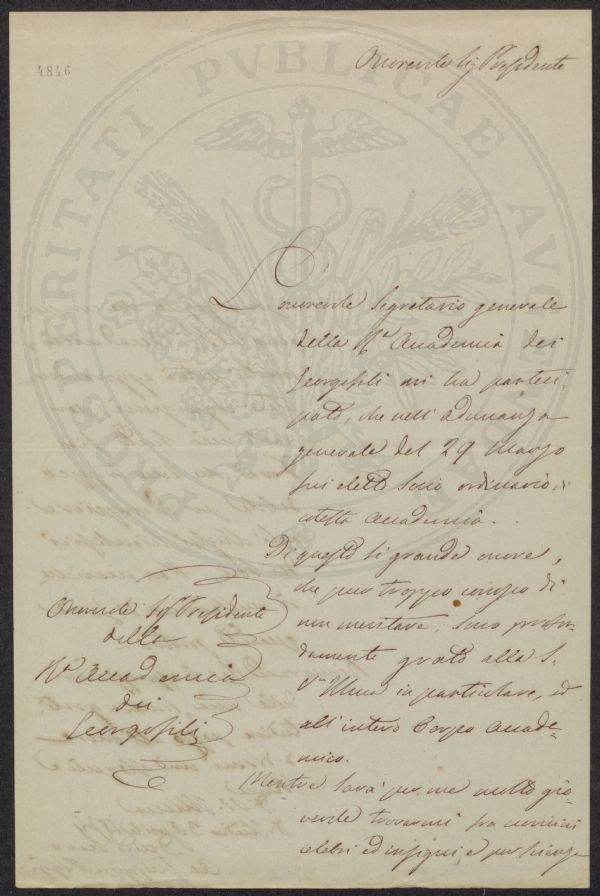 4846
Onorevole Sig Presidente
L'onorevole Segretario generale
della Rª Accademia dei
Georgofili mi ha parteci,
pato, che nell'adunanza
generale del 29 Marzo
fui eletto Socio ordinario di
cotesta Accademia.
Di questo sì grande onore,
che pur troppo conosco di
non meritare, sono profon-
damente grato alla S.
Vª Illma in particolare, ed
all'intero Corpo Accade-
mico.
Mentre sarà per me molto gio-
vevole trovarmi fra uomini
celebri ed insigni, e per scienza
Onorevole Sig Presidente
della
Rª Accademia
dei
Georgofili
PROSPERITATI PVBLICAE AVGENDAE